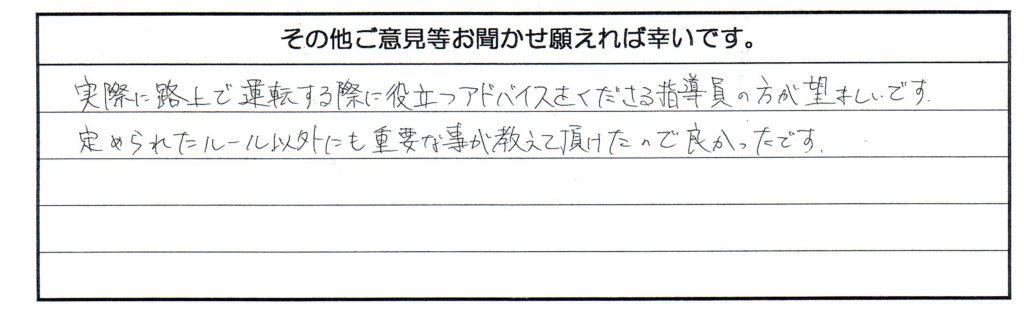 その他ご意見等お聞かせ願えれば幸いです。
実際に路上で運転する際に役立つアドバイスをくださる指導員の方が望ましいです.
定められたルール以外にも重要な事が教えて頂けたので良かったです.